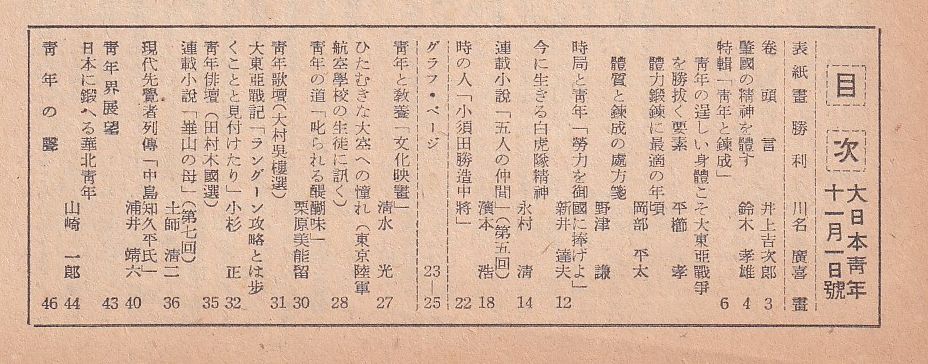 目次
大日本靑年
十一月一日號
表紙畫 勝利 川名廣喜畫
卷頭言 井上吉次郎 3
肇國の精神を體す 鈴木孝雄 4
特輯「靑年と鍊成」 6
靑年の逞しい身體こそ大東亞戰爭
を勝拔く要素 平櫛孝
體力鍛鍊に最適の年頃 岡部平太
體質と鍊成の處方箋 野津謙
時局と靑年「勞力を御國に捧げよ」 新井達夫 12
今に生きる白虎隊精神 永村淸 14
連載小說「五人の仲間」(第五回) 濱本浩 18
時の人「小須田勝造中將」 22
グラフ・ページ 23—25
靑年と敎養「文化映畫」 淸水光 27
ひたむきな大空への憧れ(東京陸軍
航空學校の生徒に訊く) 28
靑年の道「叱られる醍醐味」 栗原美能留 30
靑年歌壇(大村吳樓選) 31
大東亞戰記「ラングーン攻略とは步
くことと見付けたり」 小杉正 32
靑年俳壇(田村木國選) 35
連載小說「崋山の母」(第七回) 土師淸二 36
現代先覺者列傳「中島知久平氏」 浦井靖六 40
靑年界展望 43
日本に鍛へる華北靑年 山崎一郞 44
靑年の聲 46